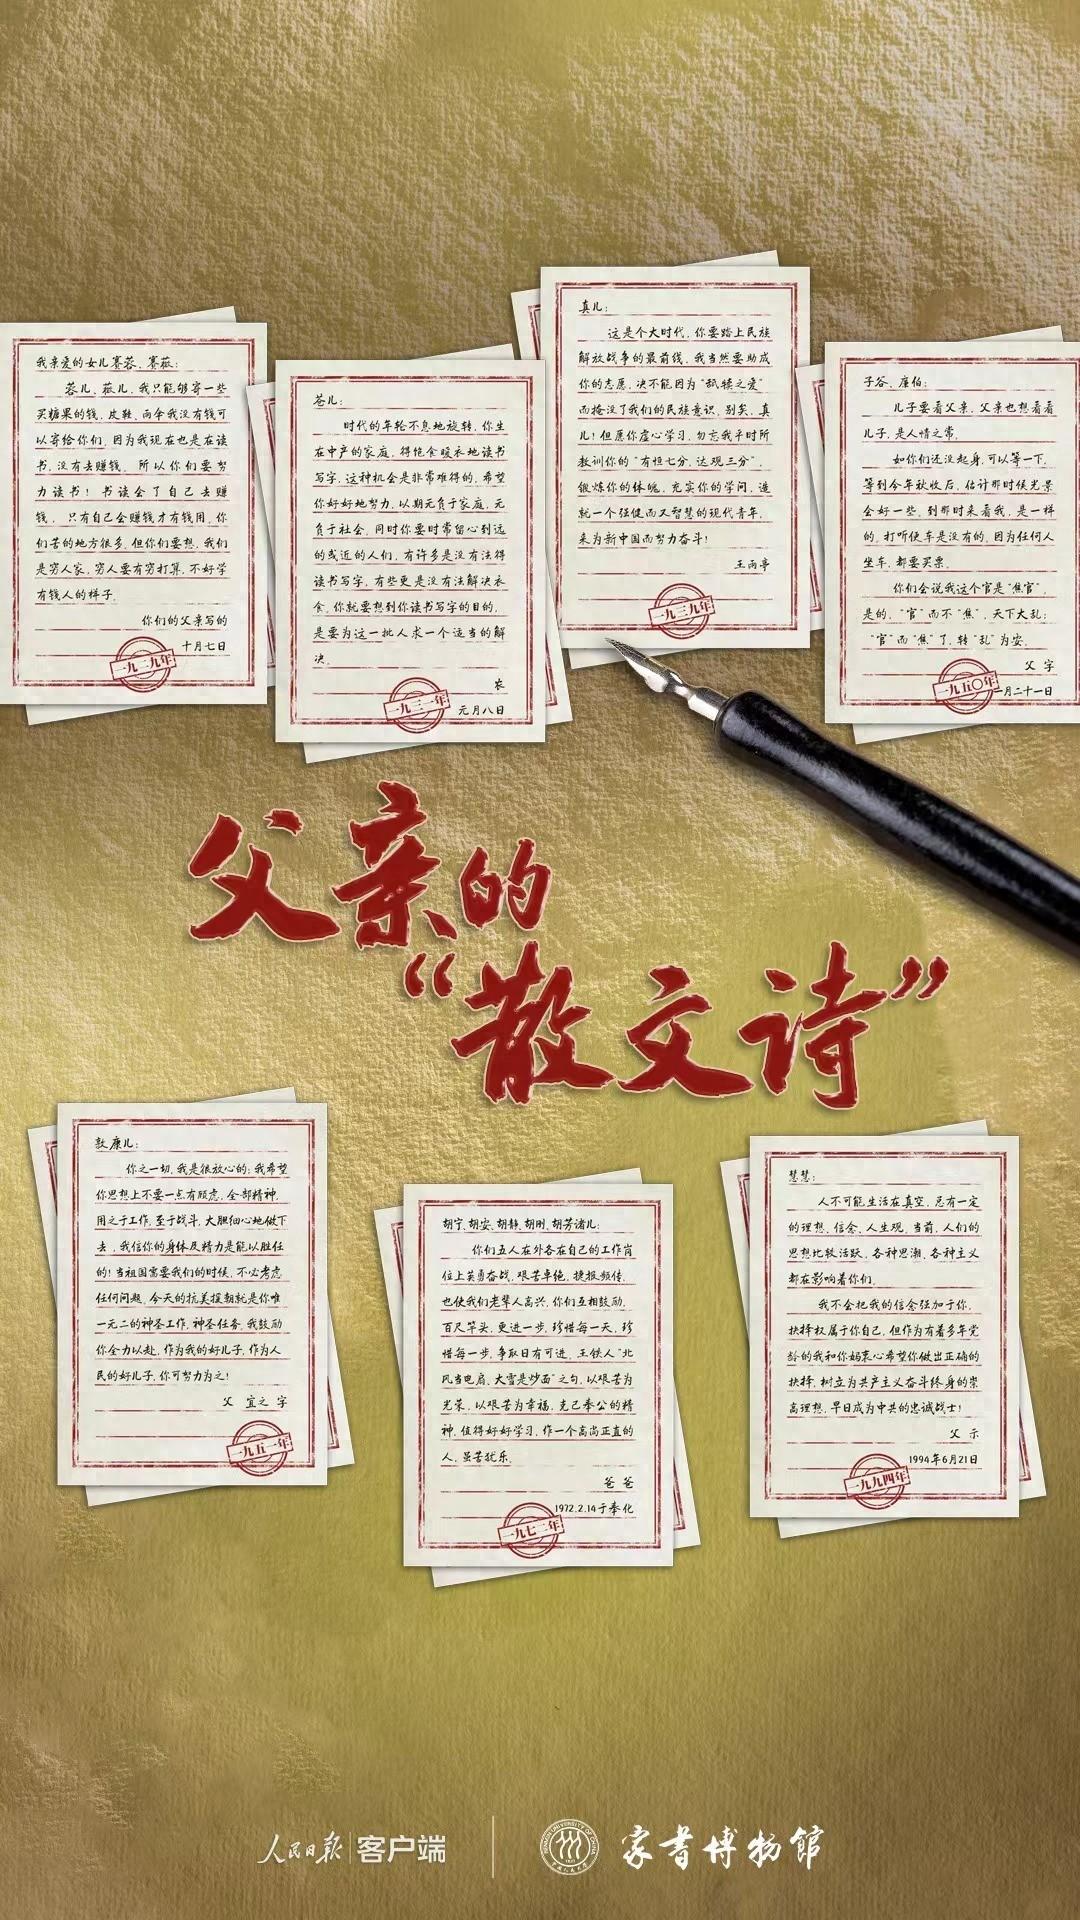 我亲爱的女儿赛蓉、赛薇：
蓉儿、薇儿，我只能够寄一些
买糖果的钱，皮鞋、雨伞我没有钱可
以寄给你们，因为我现在也是在读
书，没有去赚钱。所以你们要努
力读书！书读会了自己去赚
钱，只有自己会赚钱才有钱用，你
们苦的地方很多，但你们要想，我们
是穷人家，穷人要有穷打算，不好学
有钱人的样子。
你们的父亲写的
十月七日
一九二九年
苍儿：
时代的年轮不息地旋转，你生
在中产的家庭，得饱食暖衣地读书
写字，这种机会是非常难得的，希望
你好好地努力，以期无负于家庭，无
负于社会，同时你要时常留心到远
的或近的人们，有许多是没有法得
读书写字，有些更是没有法解决衣
食，你就要想到你读书写字的目的，
是要为这一批人求一个适当的解
决。
农
元月八日
一九三一年
真儿：
这是个大时代，你要踏上民族
解放战争的最前线，我当然要助成
你的志愿，决不能因为“舐犊之爱”
而掩没了我们的民族意识，别矣，真
儿！但愿你虚心学习，勿忘我平时所
教训你的“有恒七分，达观三分”，
锻炼你的体魄，充实你的学问，造
就一个强健而又智慧的现代青年，
来为新中国而努力奋斗！
王雨亭
一九三九年
子谷、廉伯：
儿子要看父亲，父亲也想看看
儿子，是人情之常。
如你们还没起身，可以等一下，
等到今年秋收后，估计那时候光景
会好一些，到那时来看我，是一样
的，打听便车是没有的，因为任何人
坐车，都要买票。
你们会说我这个官是“焦官”，
是的，“官”而不“焦”，天下大乱；
“官”而“焦”了，转“乱”为安。
父字
一月二十一日
一九五〇年
父亲的
“散文诗”
敦康儿：
你之一切，我是很放心的；我希望
你思想上不要一点有顾虑，全部精神，
用之于工作，至于战斗，大胆细心地做下
去，我信你的身体及精力是能以胜任
的！当祖国需要我们的时候，不必考虑
任何问题，今天的抗美援朝就是你唯
一无二的神圣工作，神圣任务，我鼓励
你全力以赴，作为我的好儿子，作为人
民的好儿子，你可努力为之！
父 宜之 字
一九五一年
胡宁、胡安、胡静、胡刚、胡芳诸儿：
你们五人在外各在自己的工作岗
位上英勇奋战，艰苦卓绝，捷报频传，
也使我们老辈人高兴，你们互相鼓励，
百尺竿头，更进一步，珍惜每一天，珍
惜每一步，争取日有可进，王铁人“北
风当电扇，大雪是炒面”之句，以艰苦为
光荣，以艰苦为幸福，克己奉公的精
神，值得好好学习，作一个高尚正直的
人，虽苦犹乐。
爸爸
1972.2.14于奉化
一九七二年
慧慧：
人不可能生活在真空，总有一定
的理想、信念、人生观，当前，人们的
思想比较活跃，各种思潮，各种主义
都在影响着你们。
我不会把我的信念强加于你，
抉择权属于你自己，但作为有着多年党
龄的我和你妈衷心希望你做出正确的
抉择，树立为共产主义奋斗终身的崇
高理想，早日成为中共的忠诚战士！
父示
1994年6月21日
一九九四年
人民日报|客户端
家书博物馆